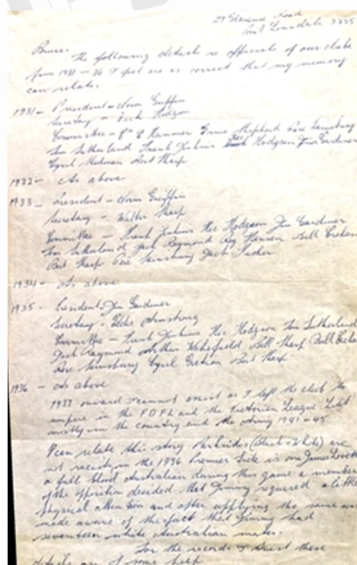 Road
Lonsdale 3225
Bruce.
The following details re officials of our club
from 1931 - 36 I feel are as correct that my memory
can relate.
1931 - President - Norm Griffin
Secretary - Hodgson
Committee - Hammer Shepherd Sainsbury
Tom Sutherland Frank Hodgson Jim Gardener
Cyril Bert Sharp
1932 - As above
1933 - President - Norm Griffin
Secretary - Walter Sharp
Committee - Frank Hodgson Jim Gardener
Tom Sutherland Jack Raymond Reg Hanson Bill
Bert Sharp Sainsbury Jack
1934 - As above
1935 - President Jim Gardener
Secretary - Armstrong
Committee - Frank Hodgson Tom Sutherland
Jack Raymond Arthur Wakefield Bill Sharp Bill
Sainsbury Cyril Bert Sharp
1936 - As above
1937 onward I cannot assist as I left the club to
umpire in the and the Victorian League List
mostly in the country and the Army 1941 - 45
I can relate this story (Black & White) are
not racist, in the 1936 Premier Side is one James
a full blood Australian during this game a member
of the opposition decided that Jimmy required a little
physical attention and after applying the same was
made aware of the fact that Jimmy had
seventeen white Australian mates.
For the records I trust these
details are of some help